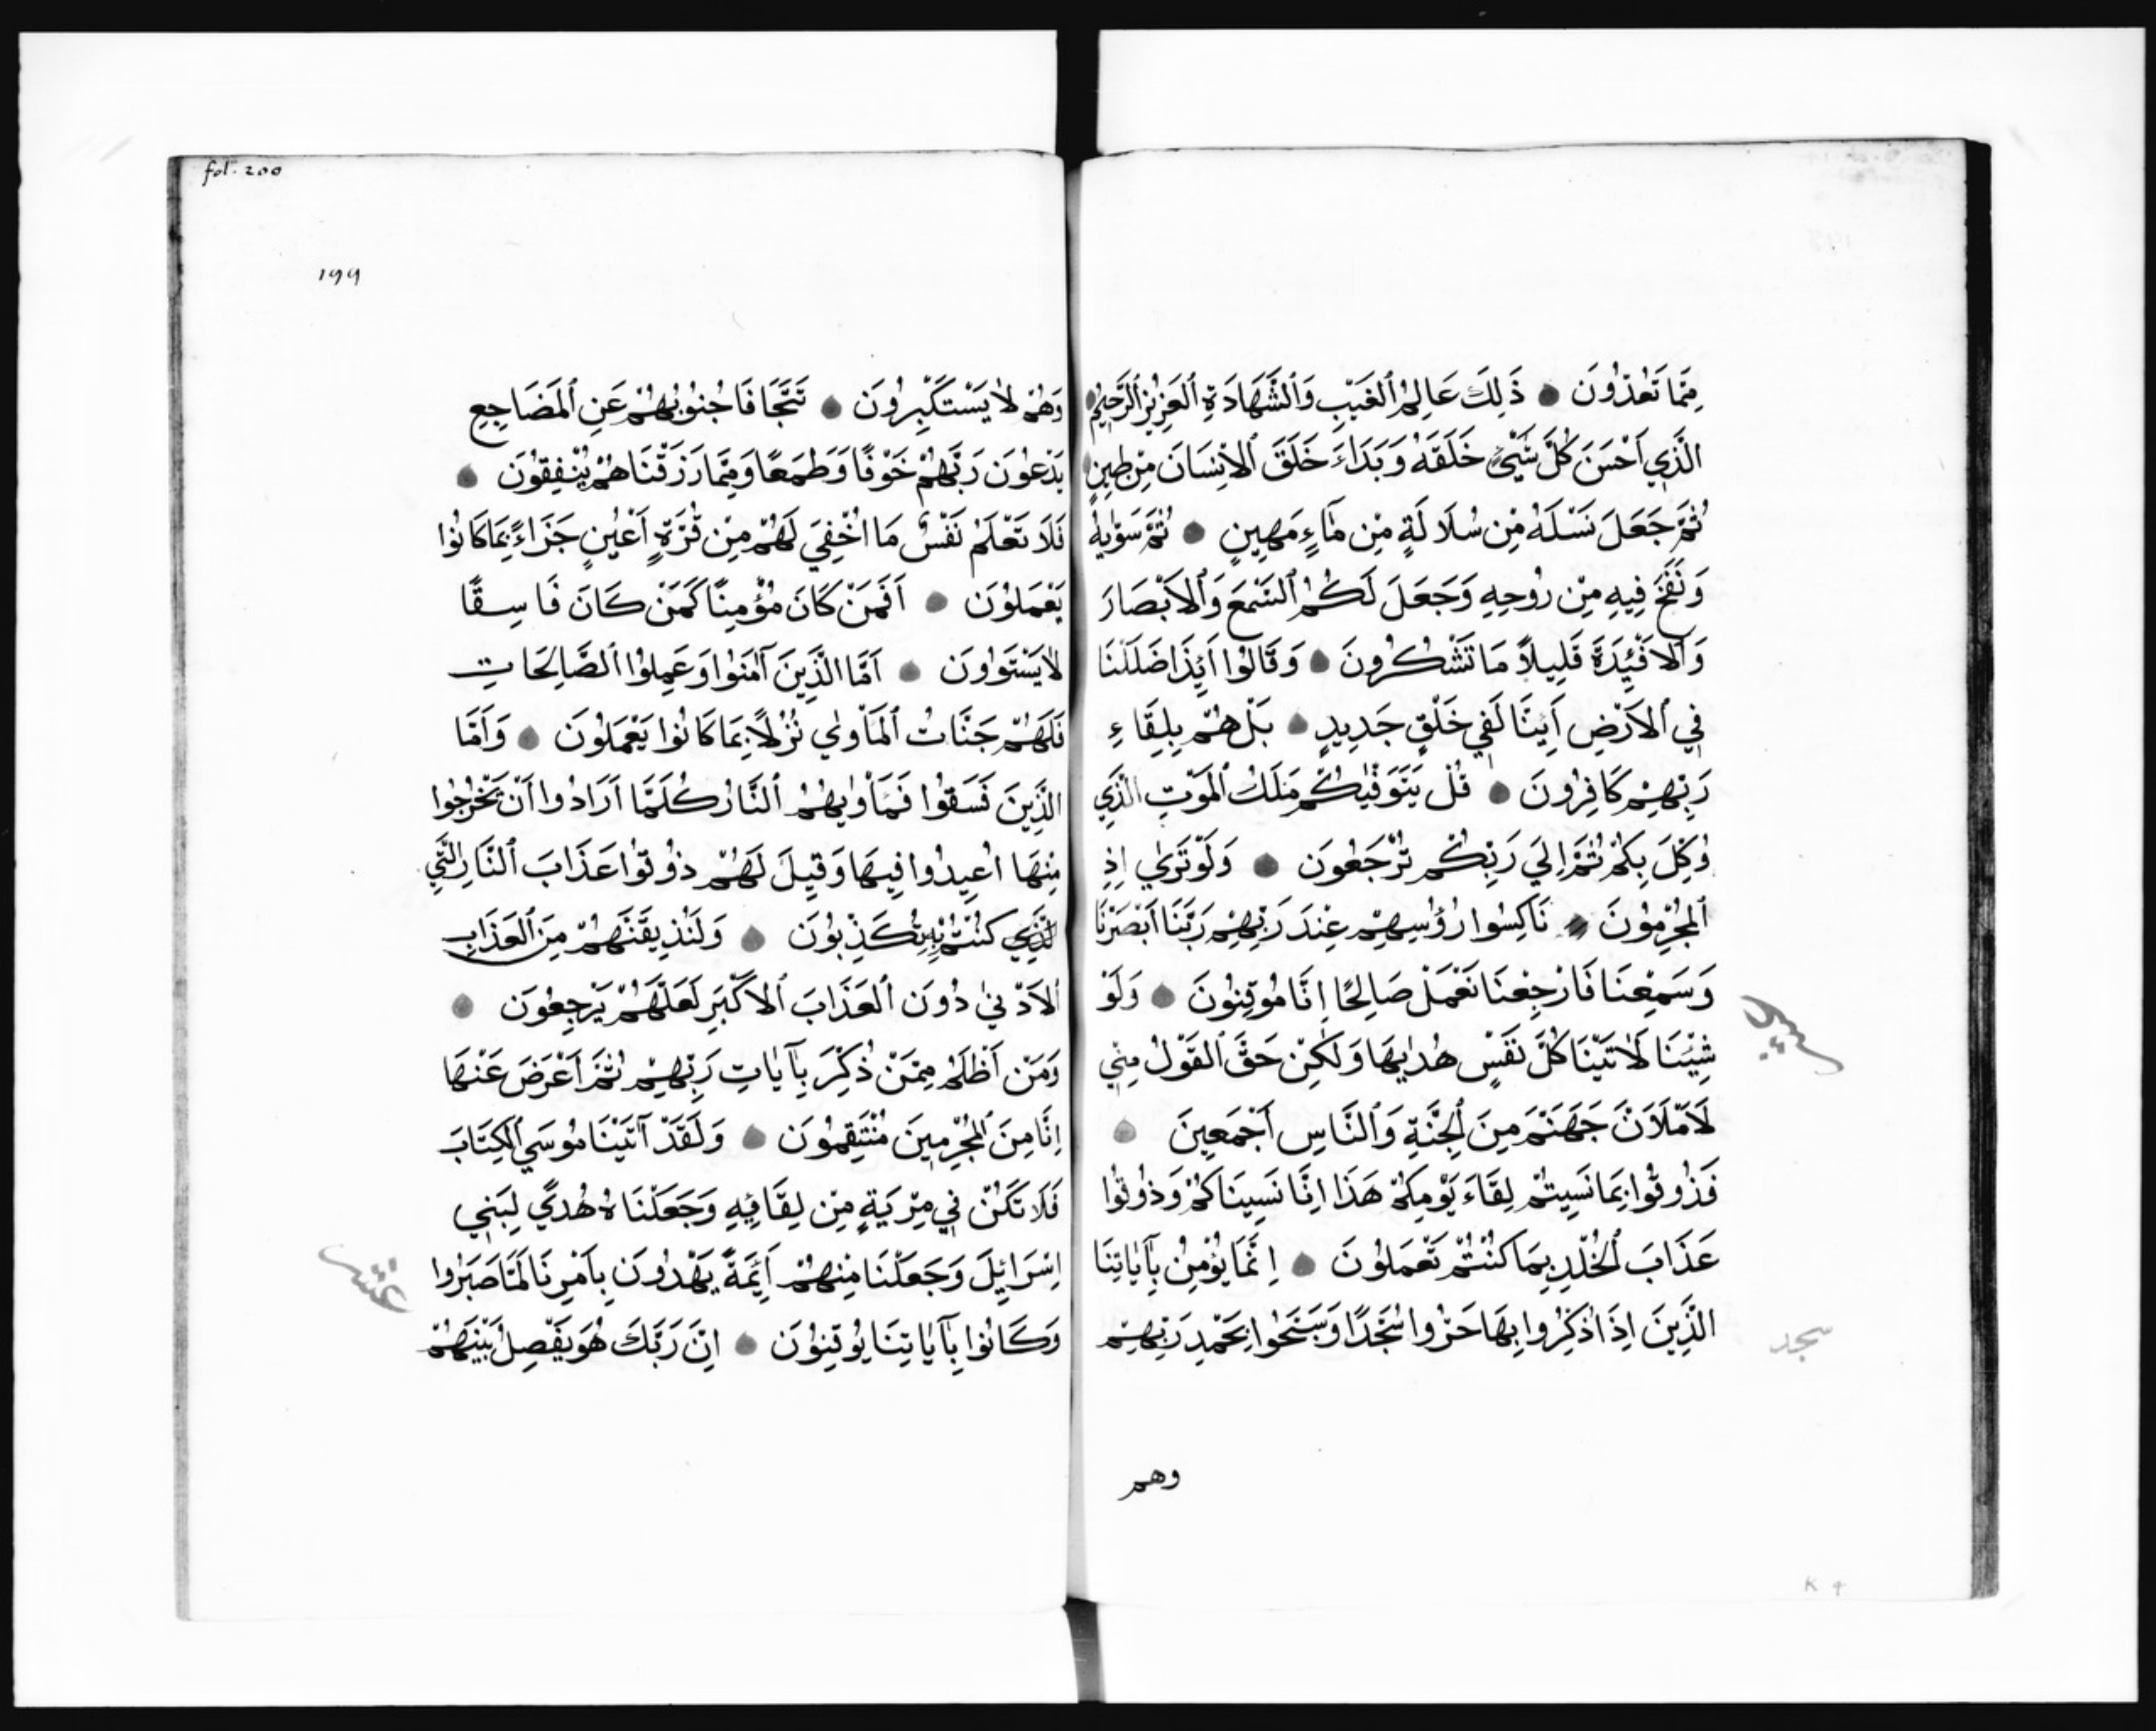 مِمَّا تَعُدُّونَ ذَلِكَ عَالِمُ ٱلغَيْبِ وَٱلشَّهَادَةِ ٱلعَزِيزُ ٱلرَّحِيمُ
الَّذِي اَحْسَنَ كُلَّ شَيْءٍ خَلَقَهُ وَبَدَاءَ خَلَقَ ٱلاِنْسَانَ مِنْ طِينٍ
ثُمَّ جَعَلَ نَسْلَهُ مِنْ سُلَالَةٍ مِنْ مَآءٍ مَهِينٍ ثُمَّ سَوّٰيهُ
وَنَفَخَ فِيهِ مِنْ رُوحِهِ وَجَعَلَ لَكُمُ ٱلسَّمْعَ وَٱلاَبْصَارَ
وَٱلاَفْئِدَةَ قَلِيلاً مَا تَشْكُرُونَ وَقَالُوا اَئِذَا ضَلَلْنَا
فِي ٱلاَرْضِ اَئِنَّا لَفِي خَلْقٍ جَدِيدٍ بَلْ هُمْ بِلِقَاءِ
رَبِّهِمْ كَافِرُونَ قُلْ يَتَوَفّٰيكُمْ مَلَكُ ٱلمَوْتِ الَّذِي
وُكِّلَ بِكُمْ ثُمَّ اِلَي رَبِّكُمْ تُرْجَعُونَ وَلَوْ تَرٰي اِذِ
ٱلمُجْرِمُونَ نَاكِسُوا رُؤُسِهِمْ عِنْدَ رَبِّهِمْ رَبَّنَا اَبْصَرْنَا
وَسَمِعْنَا فَارْجِعْنَا نَعْمَلْ صَالِحًا اِنَّا مُوقِنُونَ وَلَوْ
شِئْنَا لَاٰتَيْنَا كُلَّ نَفْسٍ هُدٰيهَا وَلَكِنْ حَقَّ ٱلقَوْلُ مِنِّي
لَاَمْلَاَنَّ جَهَنَّمَ مِنَ ٱلجِنَّةِ وَٱلنَّاسِ اَجْمَعِينَ
فَذُوقُوا بِمَا نَسِيتُمْ لِقَاءَ يَوْمِكُمْ هَذَا اِنَّا نَسِينَاكُمْ وَذُوقُوا
عَذَابَ ٱلخُلْدِ بِمَا كُنْتُمْ تَعْمَلُونَ اِنَّمَا يُؤْمِنُ بِآيَاتِنَا
الَّذِينَ اِذَا ذُكِّرُوا بِهَا خَرُّوا سُجَّدًا وَسَبَّحُوا بِحَمْدِ رَبِّهِمْ
سجد
وهم
K 4
fol. 200
١٩٩
وَهُمْ لَا يَسْتَكْبِرُونَ تَتَجَافَا جُنُوبُهُمْ عَنِ ٱلمَضَاجِعِ
يَدْعُونَ رَبَّهُمْ خَوْفًا وَطَمَعًا وَمِمَّا رَزَقْنَاهُمْ يُنْفِقُونَ
فَلَا تَعْلَمُ نَفْسٌ مَا اُخْفِيَ لَهُمْ مِنْ قُرَّةٍ اَعْيُنٍ جَزَاءً بِمَا كَانُوا
يَعْمَلُونَ اَفَمَنْ كَانَ مُؤْمِنًا كَمَنْ كَانَ فَاسِقًا
لَا يَسْتَوُونَ اَمَّا الَّذِينَ آمَنُوا وَعَمِلُوا ٱلصَّالِحَاتِ
فَلَهُمْ جَنَّاتُ ٱلمَاْوٰي نُزُلًا بِمَا كَانُوا يَعْمَلُونَ وَاَمَّا
الَّذِينَ فَسَقُوا فَمَاْوٰيهُمُ ٱلنَّارُ كُلَمَّا اَرَادُوا اَنْ يَخْرُجُوا
مِنْهَا اُعِيدُوا فِيهَا وَقِيلَ لَهُمْ ذُوقُوا عَذَابَ ٱلنَّارِ الَّتِي
الَّذِي كُنْتُمْ بِهِ تُكَذِّبُونَ وَلَنُذِيقَنَّهُمْ مِنَ ٱلعَذَابِ
ٱلاَدْنٰي دُونَ ٱلعَذَابَ ٱلاَكْبَرِ لَعَلَّهُمْ يَرْجِعُونَ
وَمَنْ اَظْلَمُ مِمَّنْ ذُكِّرَ بِآيَاتِ رَبِّهِمْ ثُمَّ اَعْرَضَ عَنْهَا
اِنَّا مِنَ ٱلمُجْرِمِينَ مُنْتَقِمُونَ وَلَقَدْ آتَيْنَا مُوسَي ٱلكِتَابَ
فَلَا تَكُنْ فِي مِرْيَةٍ مِنْ لِقَائِهِ وَجَعَلْنَاهُ هُدًي لِبَنِي
اِسْرَائِلَ وَجَعَلْنَا مِنْهُمْ اَئِمَةً يَهْدُونَ بِاَمْرِنَا لَمَّا صَبَرُوا
عشر
وَكَانُوا بِآيَاتِنَا يُوقِنُونَ اِنَّ رَبَّكَ هُوَ يَفْصِلُ بَيْنَهُمْ